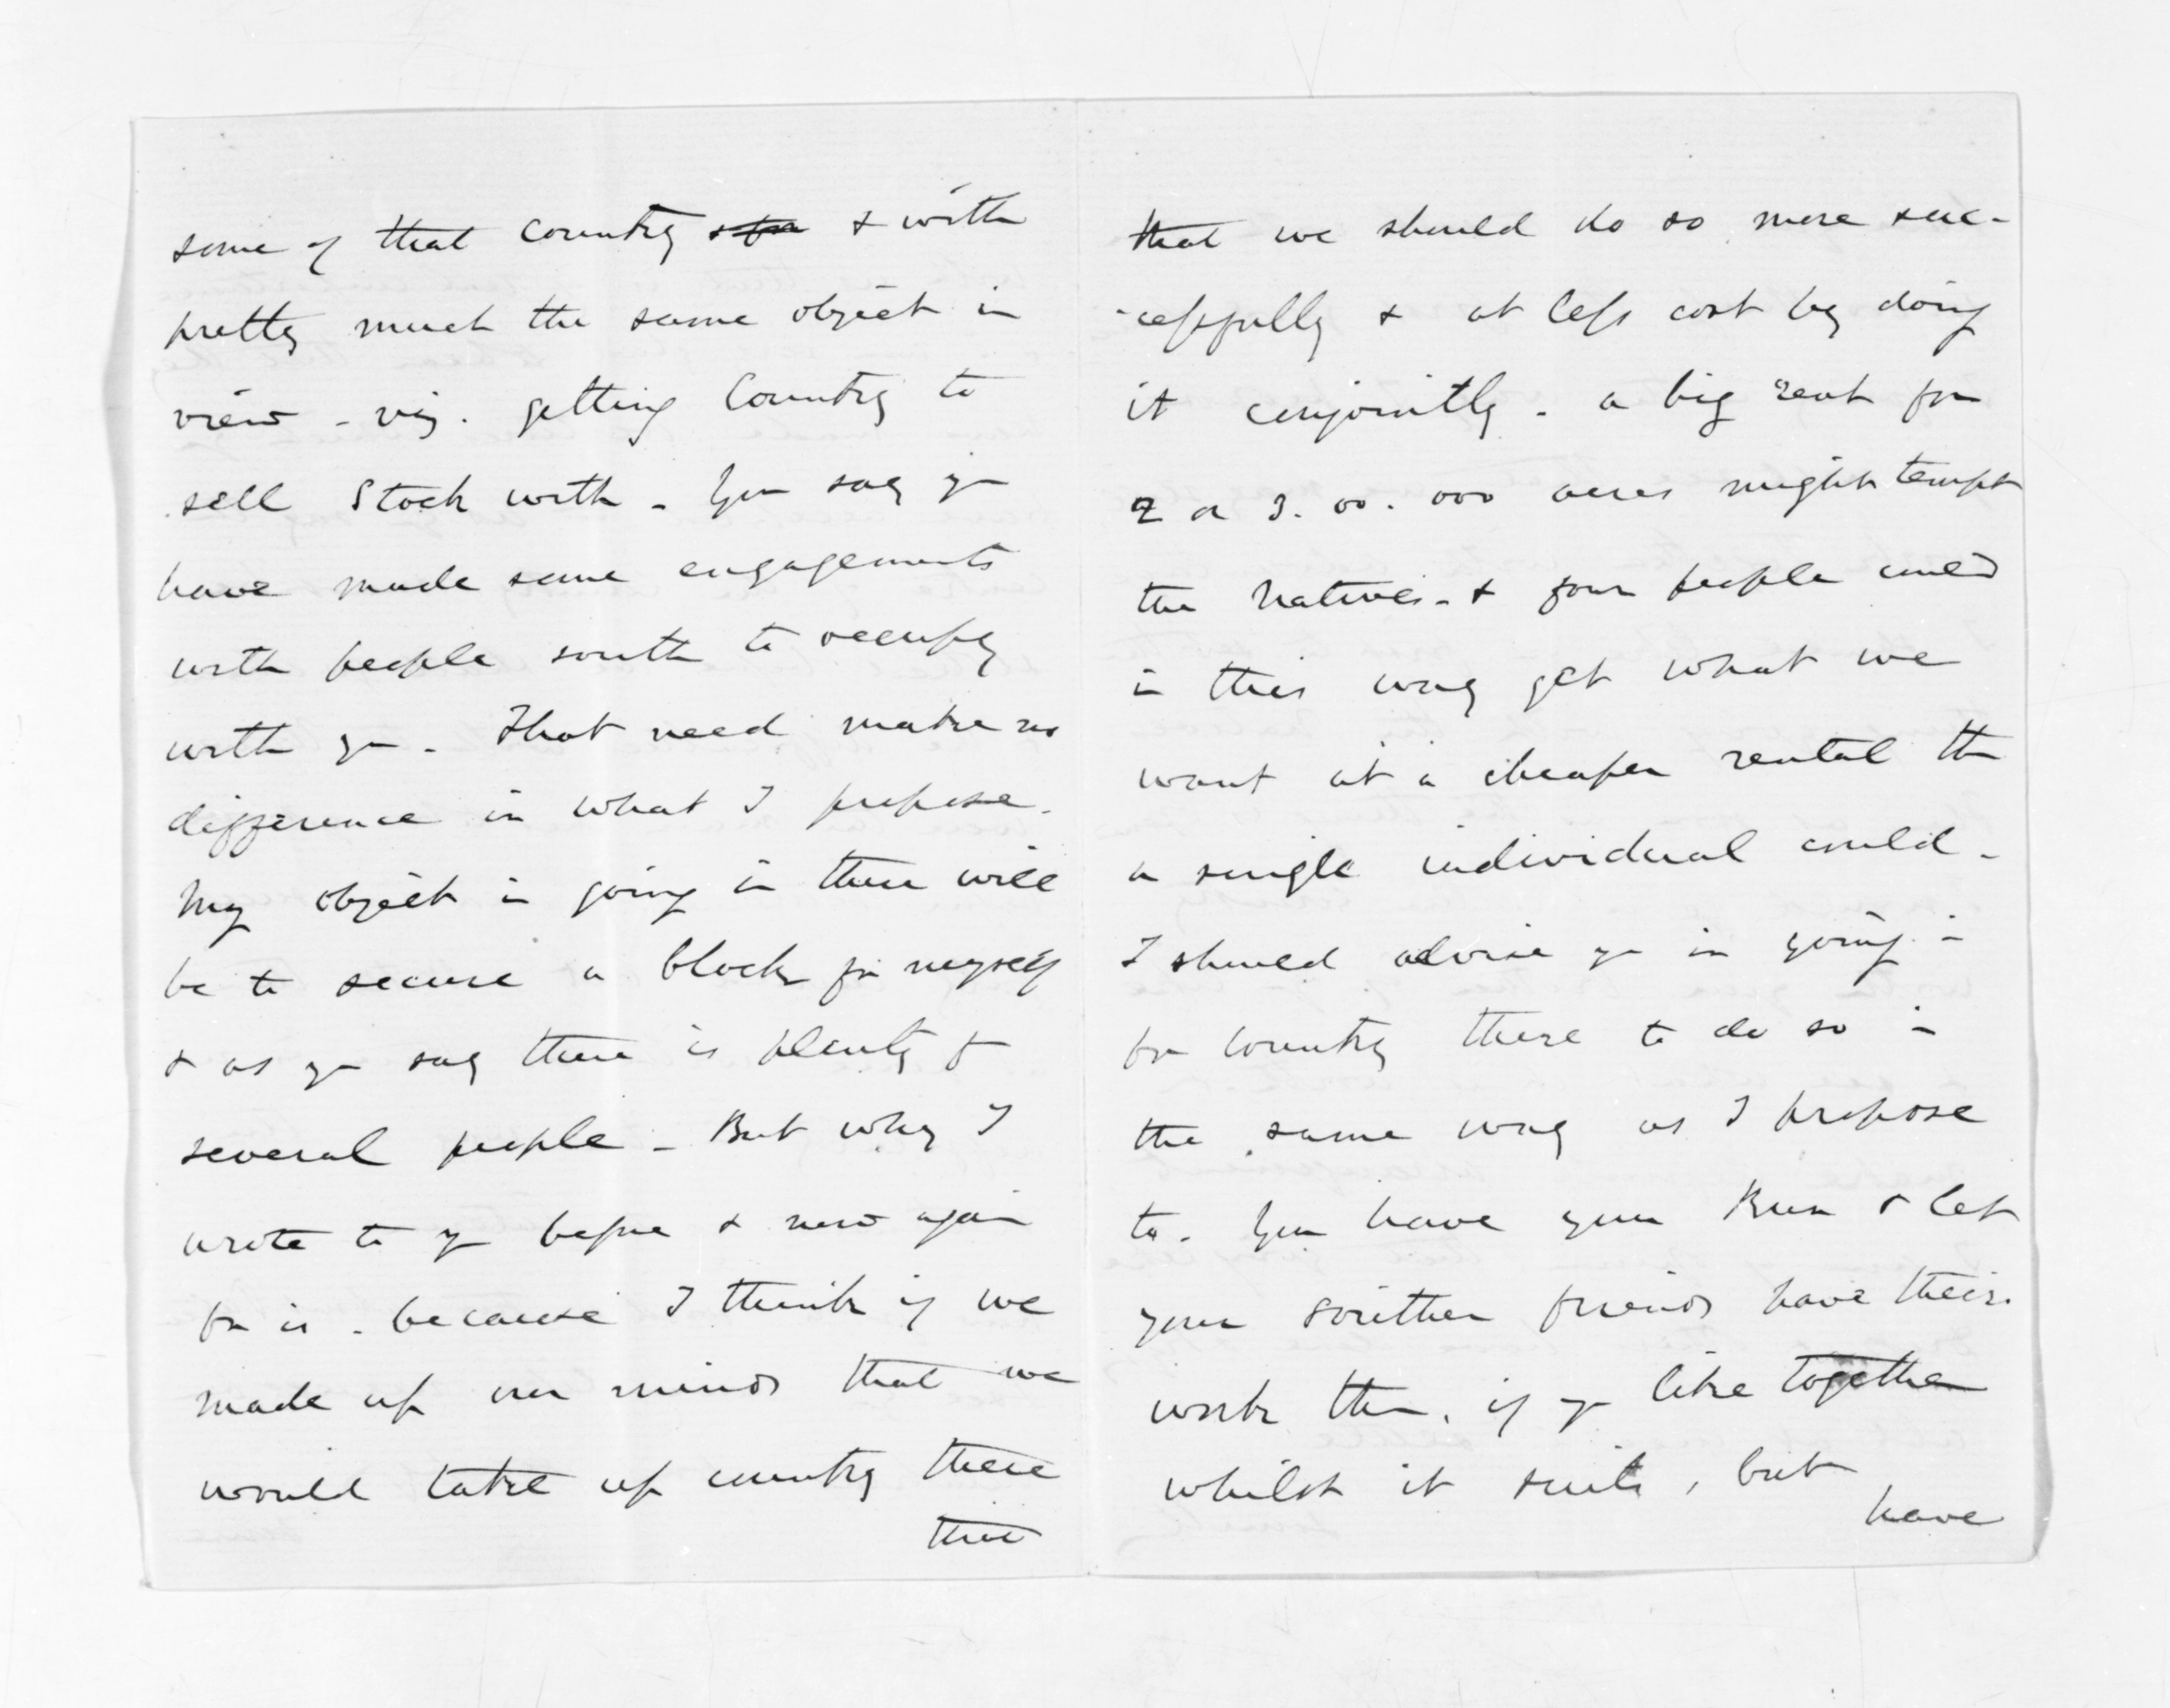 some of that country & with
pretty much the same object in
view - viz. getting Country to
sell Stock with - You say you
have made some engagements
with people south to occupy
with you - That need make no
difference in what I propose.
My object in going in there will
be to secure a block for myself
& as you say there is plenty for
several people - But why I
wrote to you before & now again
for is - because I think if we
made up our minds that we
would take up country there
that
that we should do so more suc-
-cessfully & at less cost by doing
it conjointly - a big rent for
2 or 3.00.000 acres might tempt
the Natives - & four people could
in this way get what we
want at a cheaper rental than
a single individual could -
I should advise you in going in
for Country there to do so in
the same way as I propose
to. You have your Run & let
your southern friends have theirs.
work them, if you like together
whilst it suits, but
have